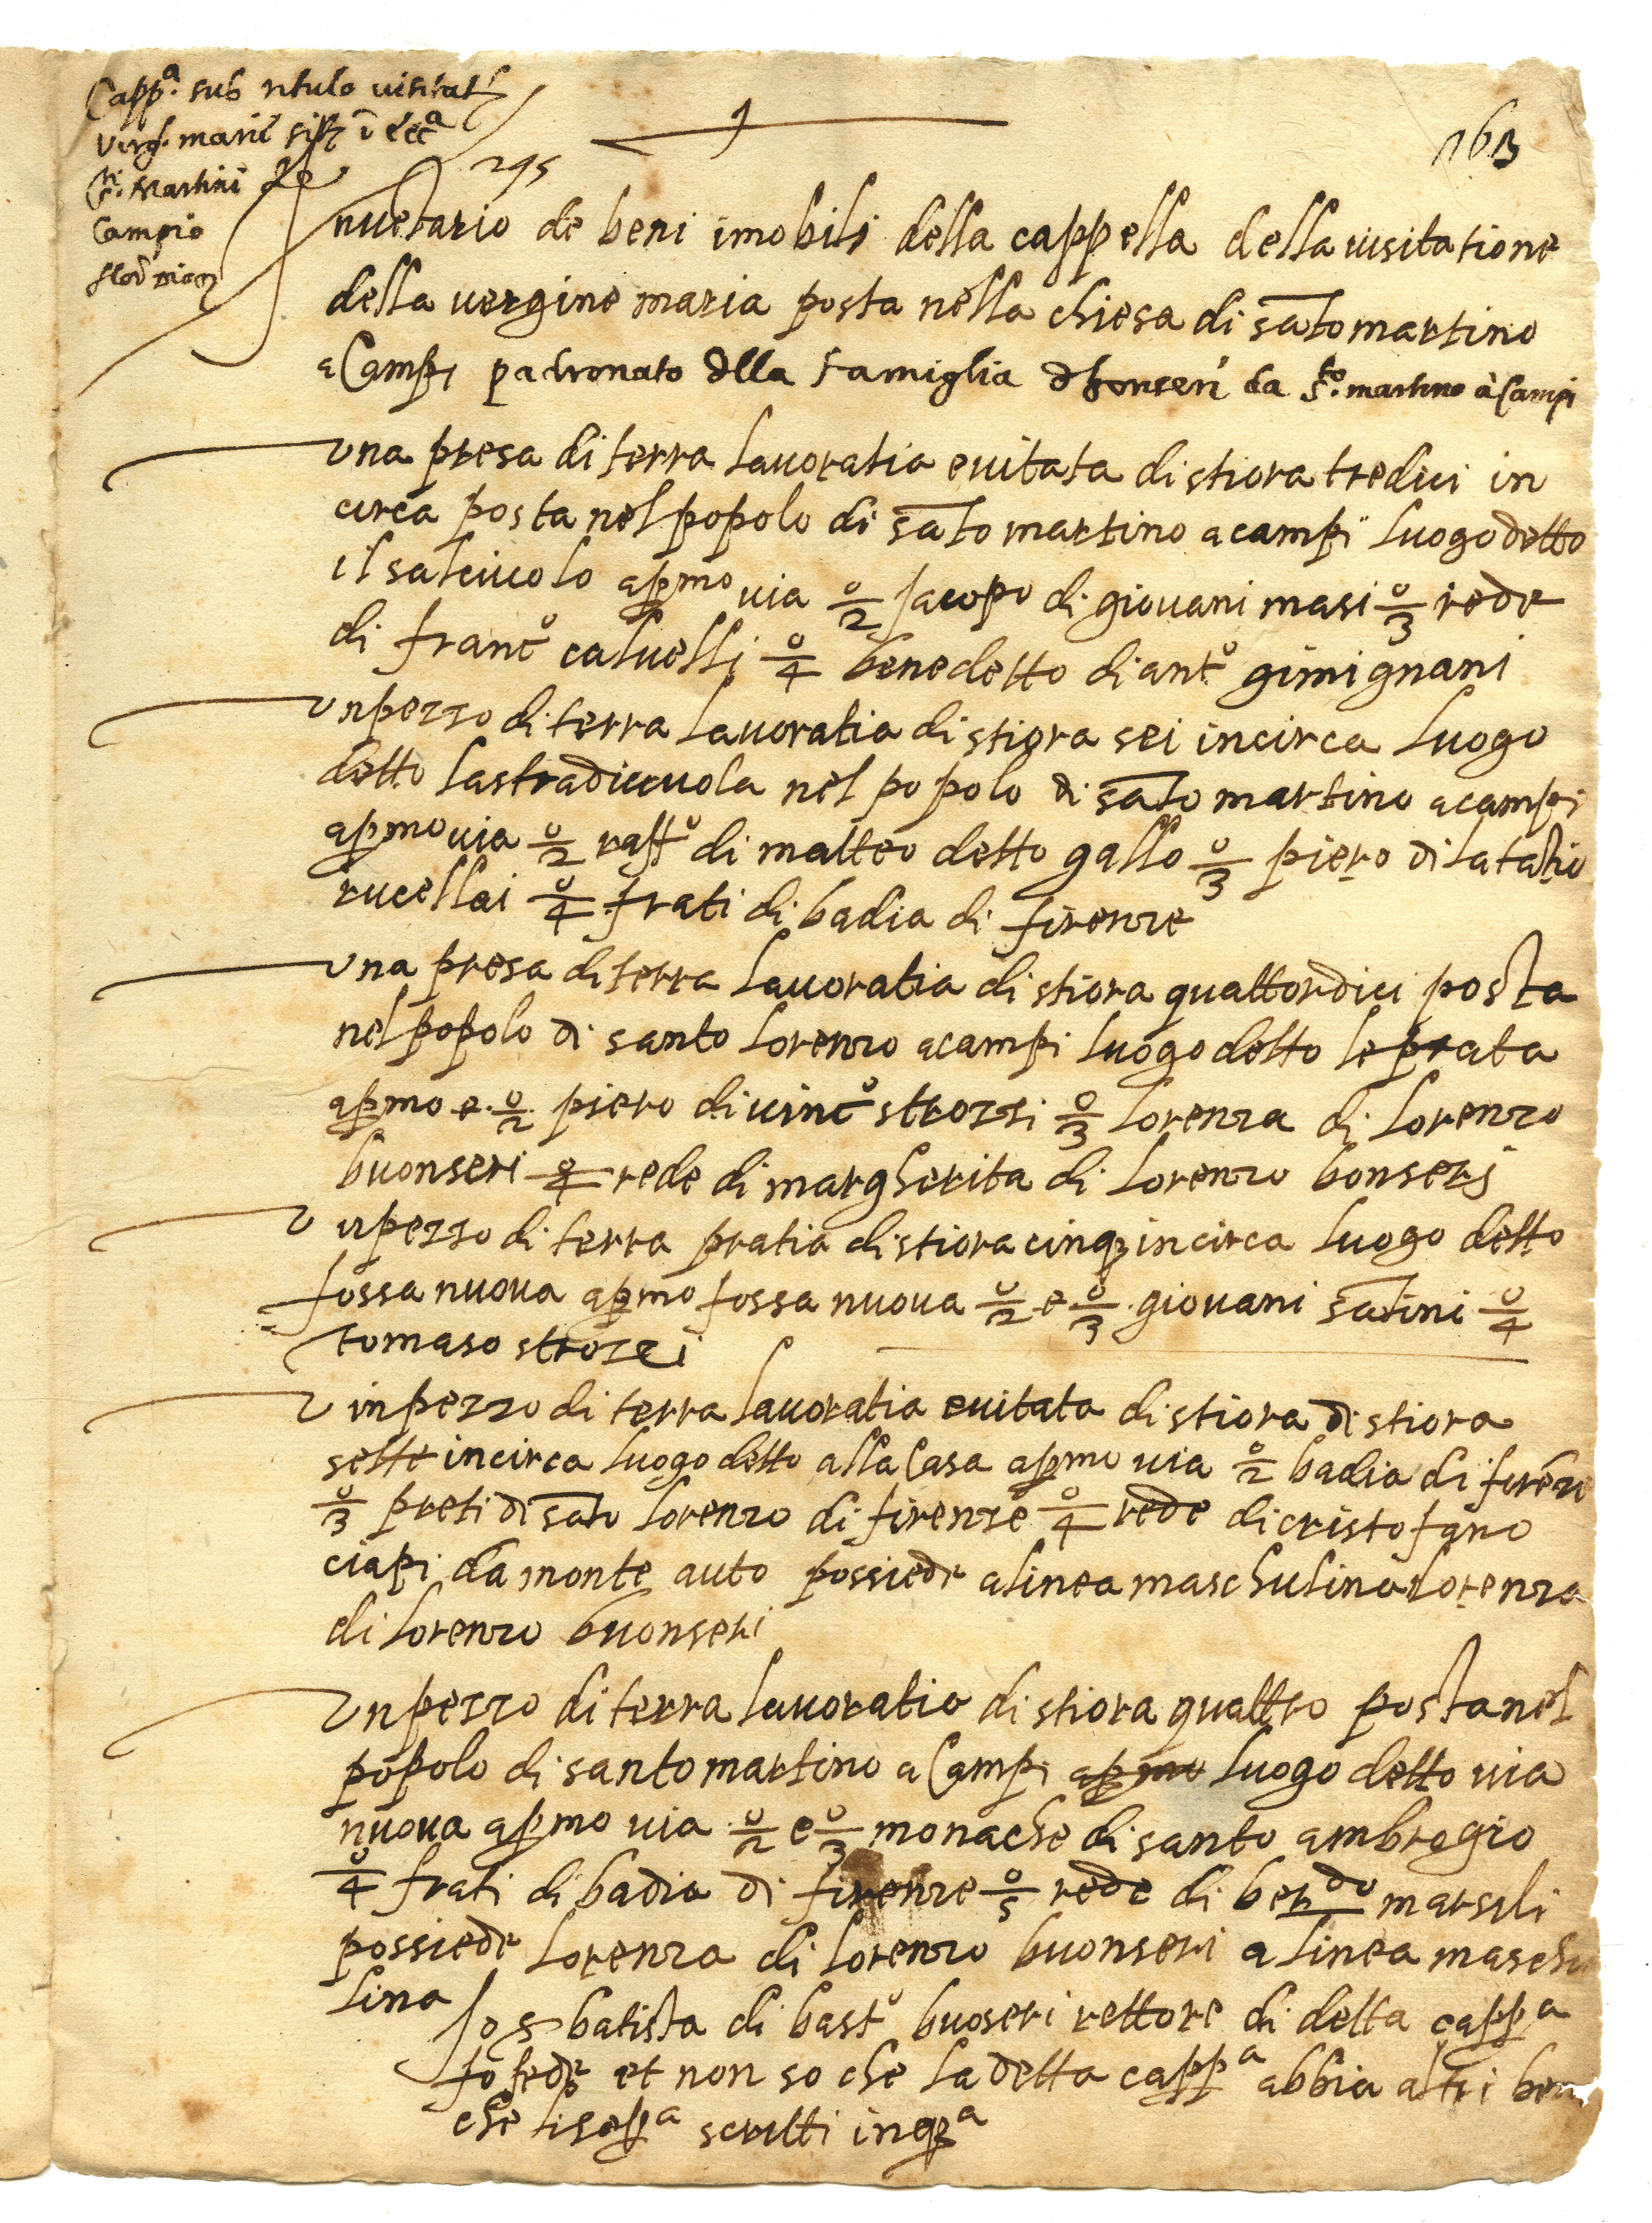 Capp.a sub titulo visitat
Virg. marie sit i ecca
S.ti Martini de
Campio
flor
163
295
nuetario de beni imobili della cappella della visitatione
della vergine maria posta nella chiesa di sāto martino
a Campi padronato dlla famiglia d bonseri da S.to martino à Campi
una presa di terra lavoratia evitata di stiora tredici in
circa posta nel popolo di sāto martino a campi luogo detto
il salciuolo apmo via 0/2 Jacopo di giovani masi 0/3 rede
di franco calvelli 0/4 benedetto di anto gimignani
un pezzo di terra lavoratia di stiora sei incirca luogo
detto la stradicciuola nel popolo di sāto martino a campi
apmo via 0/2 raffo di matteo detto gallo 0/3 piero di
rucellai 0/4 frati di badia di firenze
una presa di terra lavoratia di stiora quattordici posta
nel popolo di santo lorenzo a campi luogo detto le prata
apmo e 0/2 piero di vinco strozzi 0/3 lorenza di lorenzo
buonseri 0/4 rede di margherita di lorenzo bonseri
un pezzo di terra pratia di stiora cinq incirca luogo detto
fossa nuova apmo fossa nuova 0/2 e 0/3 giovani sātini 0/4
tomaso strozzi
un pezzo di terra lavoratia evitata di stiora di stiora
sette incirca luogo detto alla Casa apmo via 0/2 badia di firēze
0/3 preti di sāto lorenzo di firenze 0/4 rede di cristofano
ciapi da monte auto possiede a linea maschulina lorenza
di lorenzo buonseri
un pezzo di terra lavoratia di stiora quattro posta nel
popolo di santo martino a Campi apmo luogo detto via
nuova apmo via 0/2 e 0/3 monache di santo ambrogio
0/4 frati di badia di firenze 0/5 rede di berdo marsili
possiede lorenza di lorenzo buonseri a linea maschu
lina
Jo S batista di basto buoseri rettore di detta cappa
fo fede et non so che la detta cappa abbia altri beni
che li sopa scritti in qa